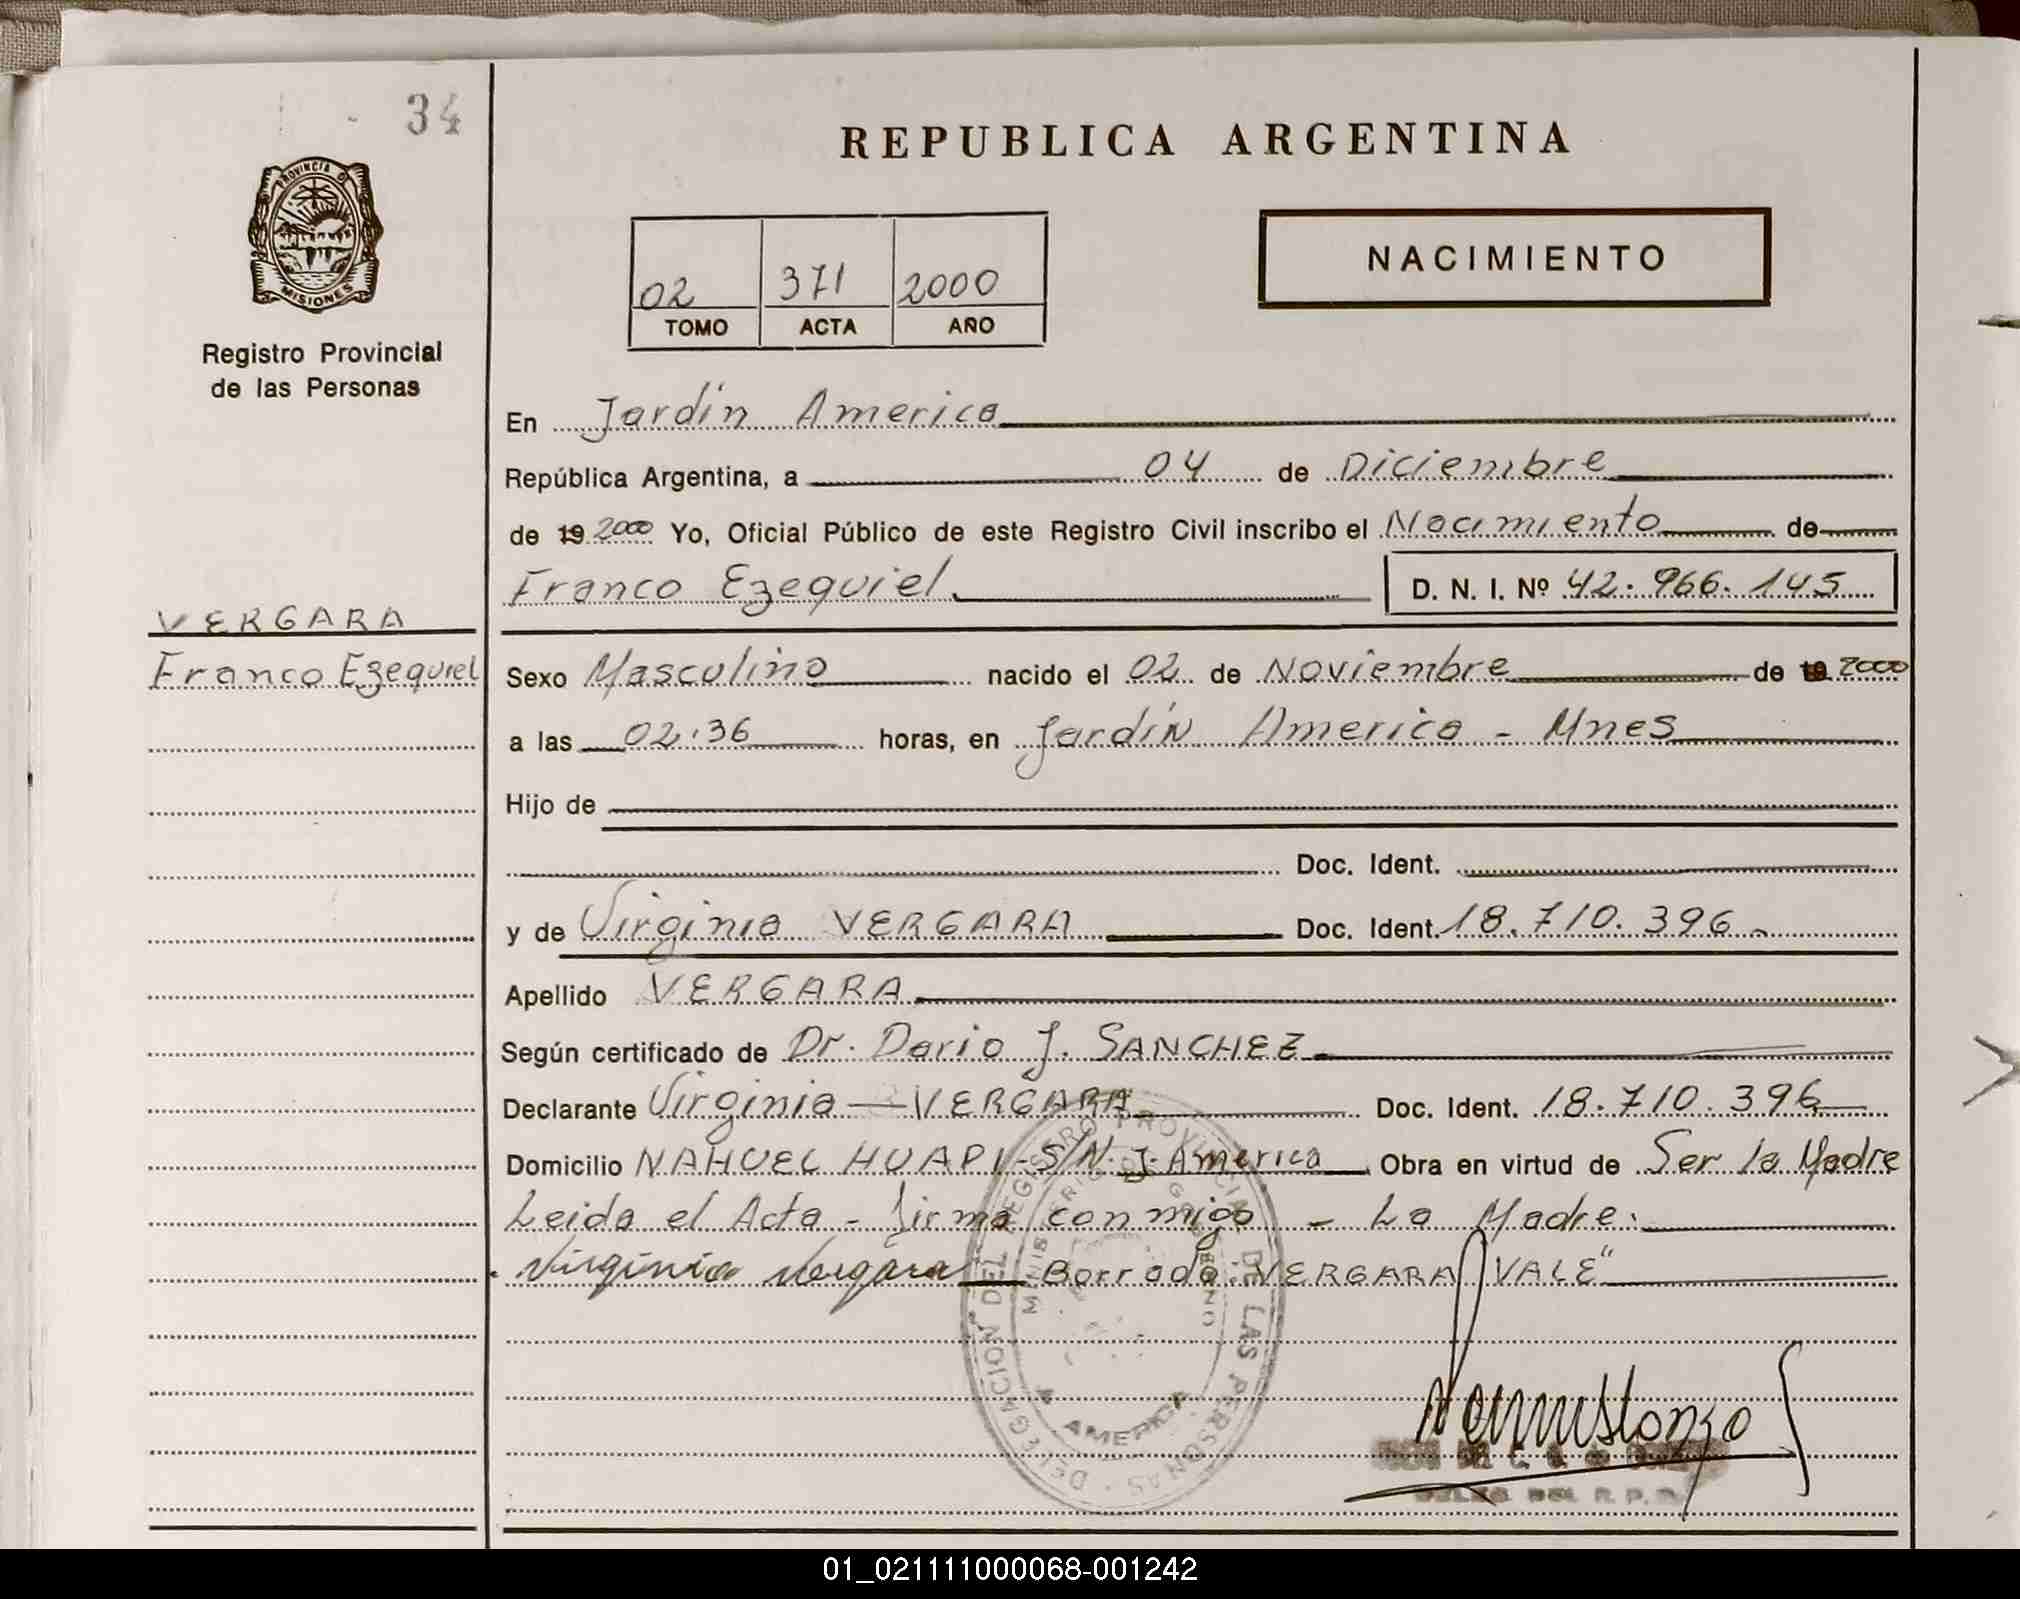 34
REPUBLICA ARGENTINA
PROVINCIA D
MISIONES
Registro Provincial
de las Personas
02 371 2000
TOMO ACTA AÑO
NACIMIENTO
En Jardín America
República Argentina, a 04 de Diciembre
de 19 2000 Yo, Oficial Público de este Registro Civil inscribo el Nacimiento de
Franco Ezequiel D. N. I. Nº 42.966.145
VERGARA
Franco Ezequiel
Sexo Masculino nacido el 02 de Noviembre de 19 2000
a las 02:36 horas, en Jardín America - Mnes
Hijo de
Doc. Ident.
y de Virginia VERGARA Doc. Ident. 18.710.396
Apellido VERGARA
Según certificado de Dr. Dario J. SANCHEZ
Declarante Virginia VERGARA Doc. Ident. 18.710.396
Domicilio NAHUEL HUAPI - S/N. J. America Obra en virtud de Ser la Madre
Leida el Acta - firma conmigo - La Madre.
Virginia Vergara Borrado VERGARA "VALE"
DELEGACION DEL REGISTRO PROVINCIAL DE LAS PERSONAS
MINISTERIO DE GOBIERNO
AMERICA
01_021111000068-001242